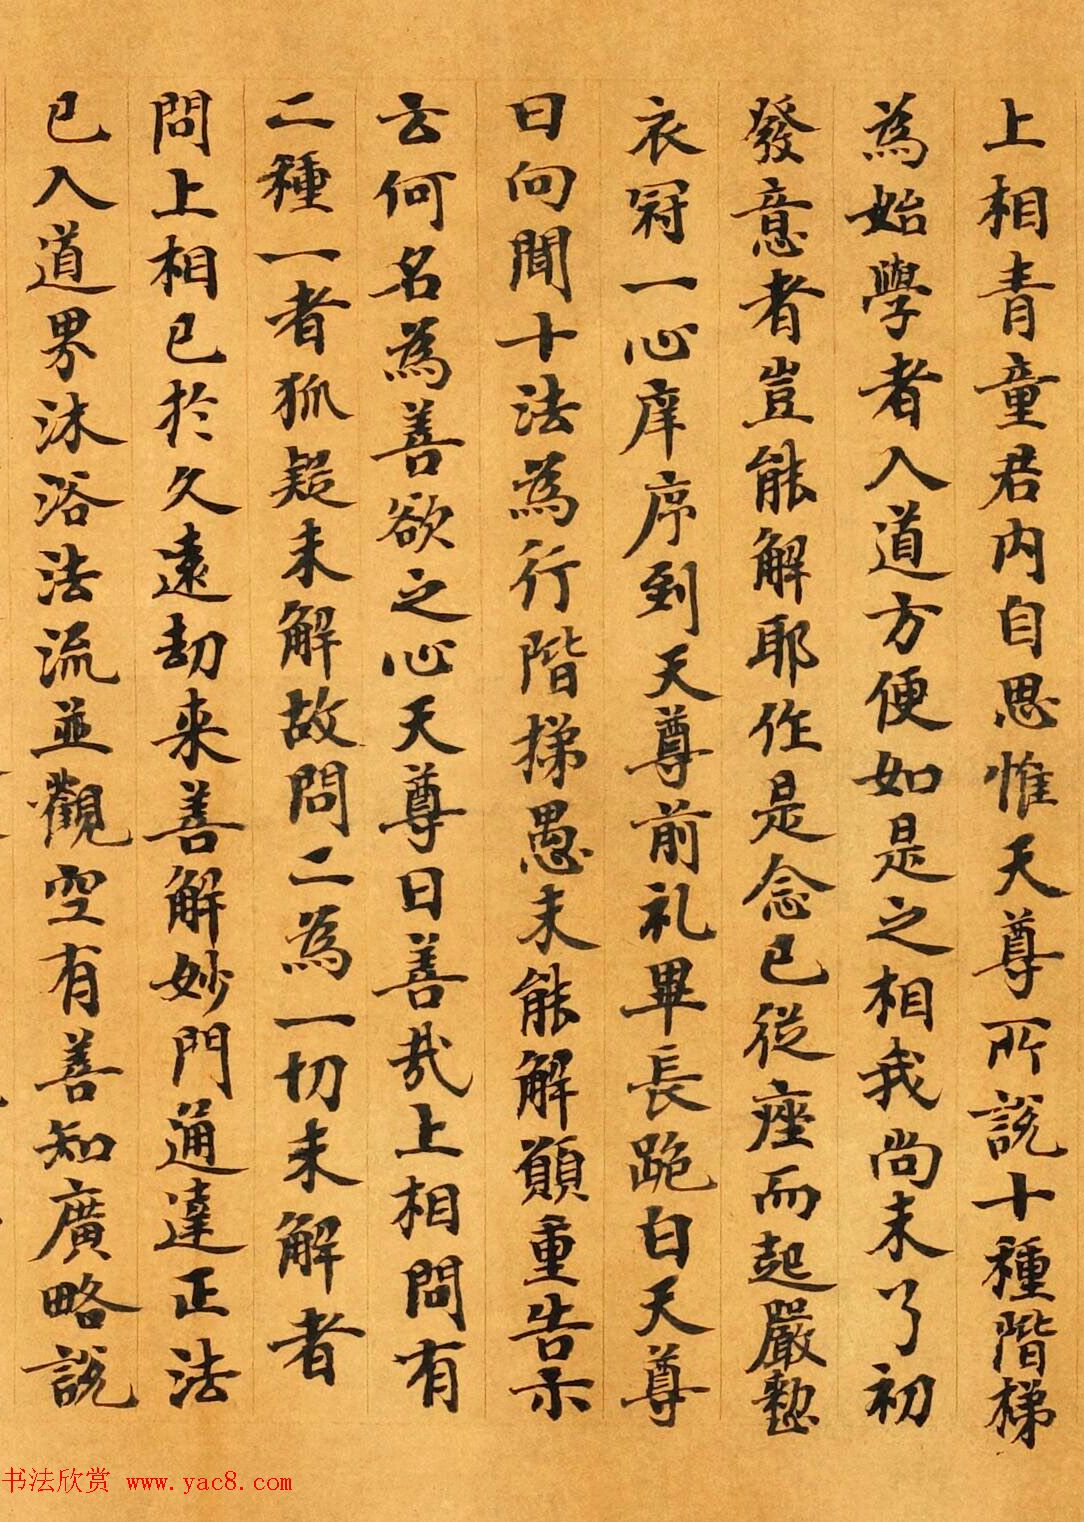 上相青童君内自思惟天尊所說十種階梯
為始學者入道方便如是之相我尚未了初
發意者豈能解耶作是念已從座而起嚴整
衣冠一心庠序到天尊前礼畢長跪白天尊
曰向聞十法為行階梯愚未能解願重告示
云何名為善欲之心天尊曰善哉上相問有
二種一者狐疑未解故問二為一切未解者
問上相已於久遠劫来善解妙門通達正法
已入道界沐浴法流並觀空有善知廣略說
书法欣赏 www.yac8.com